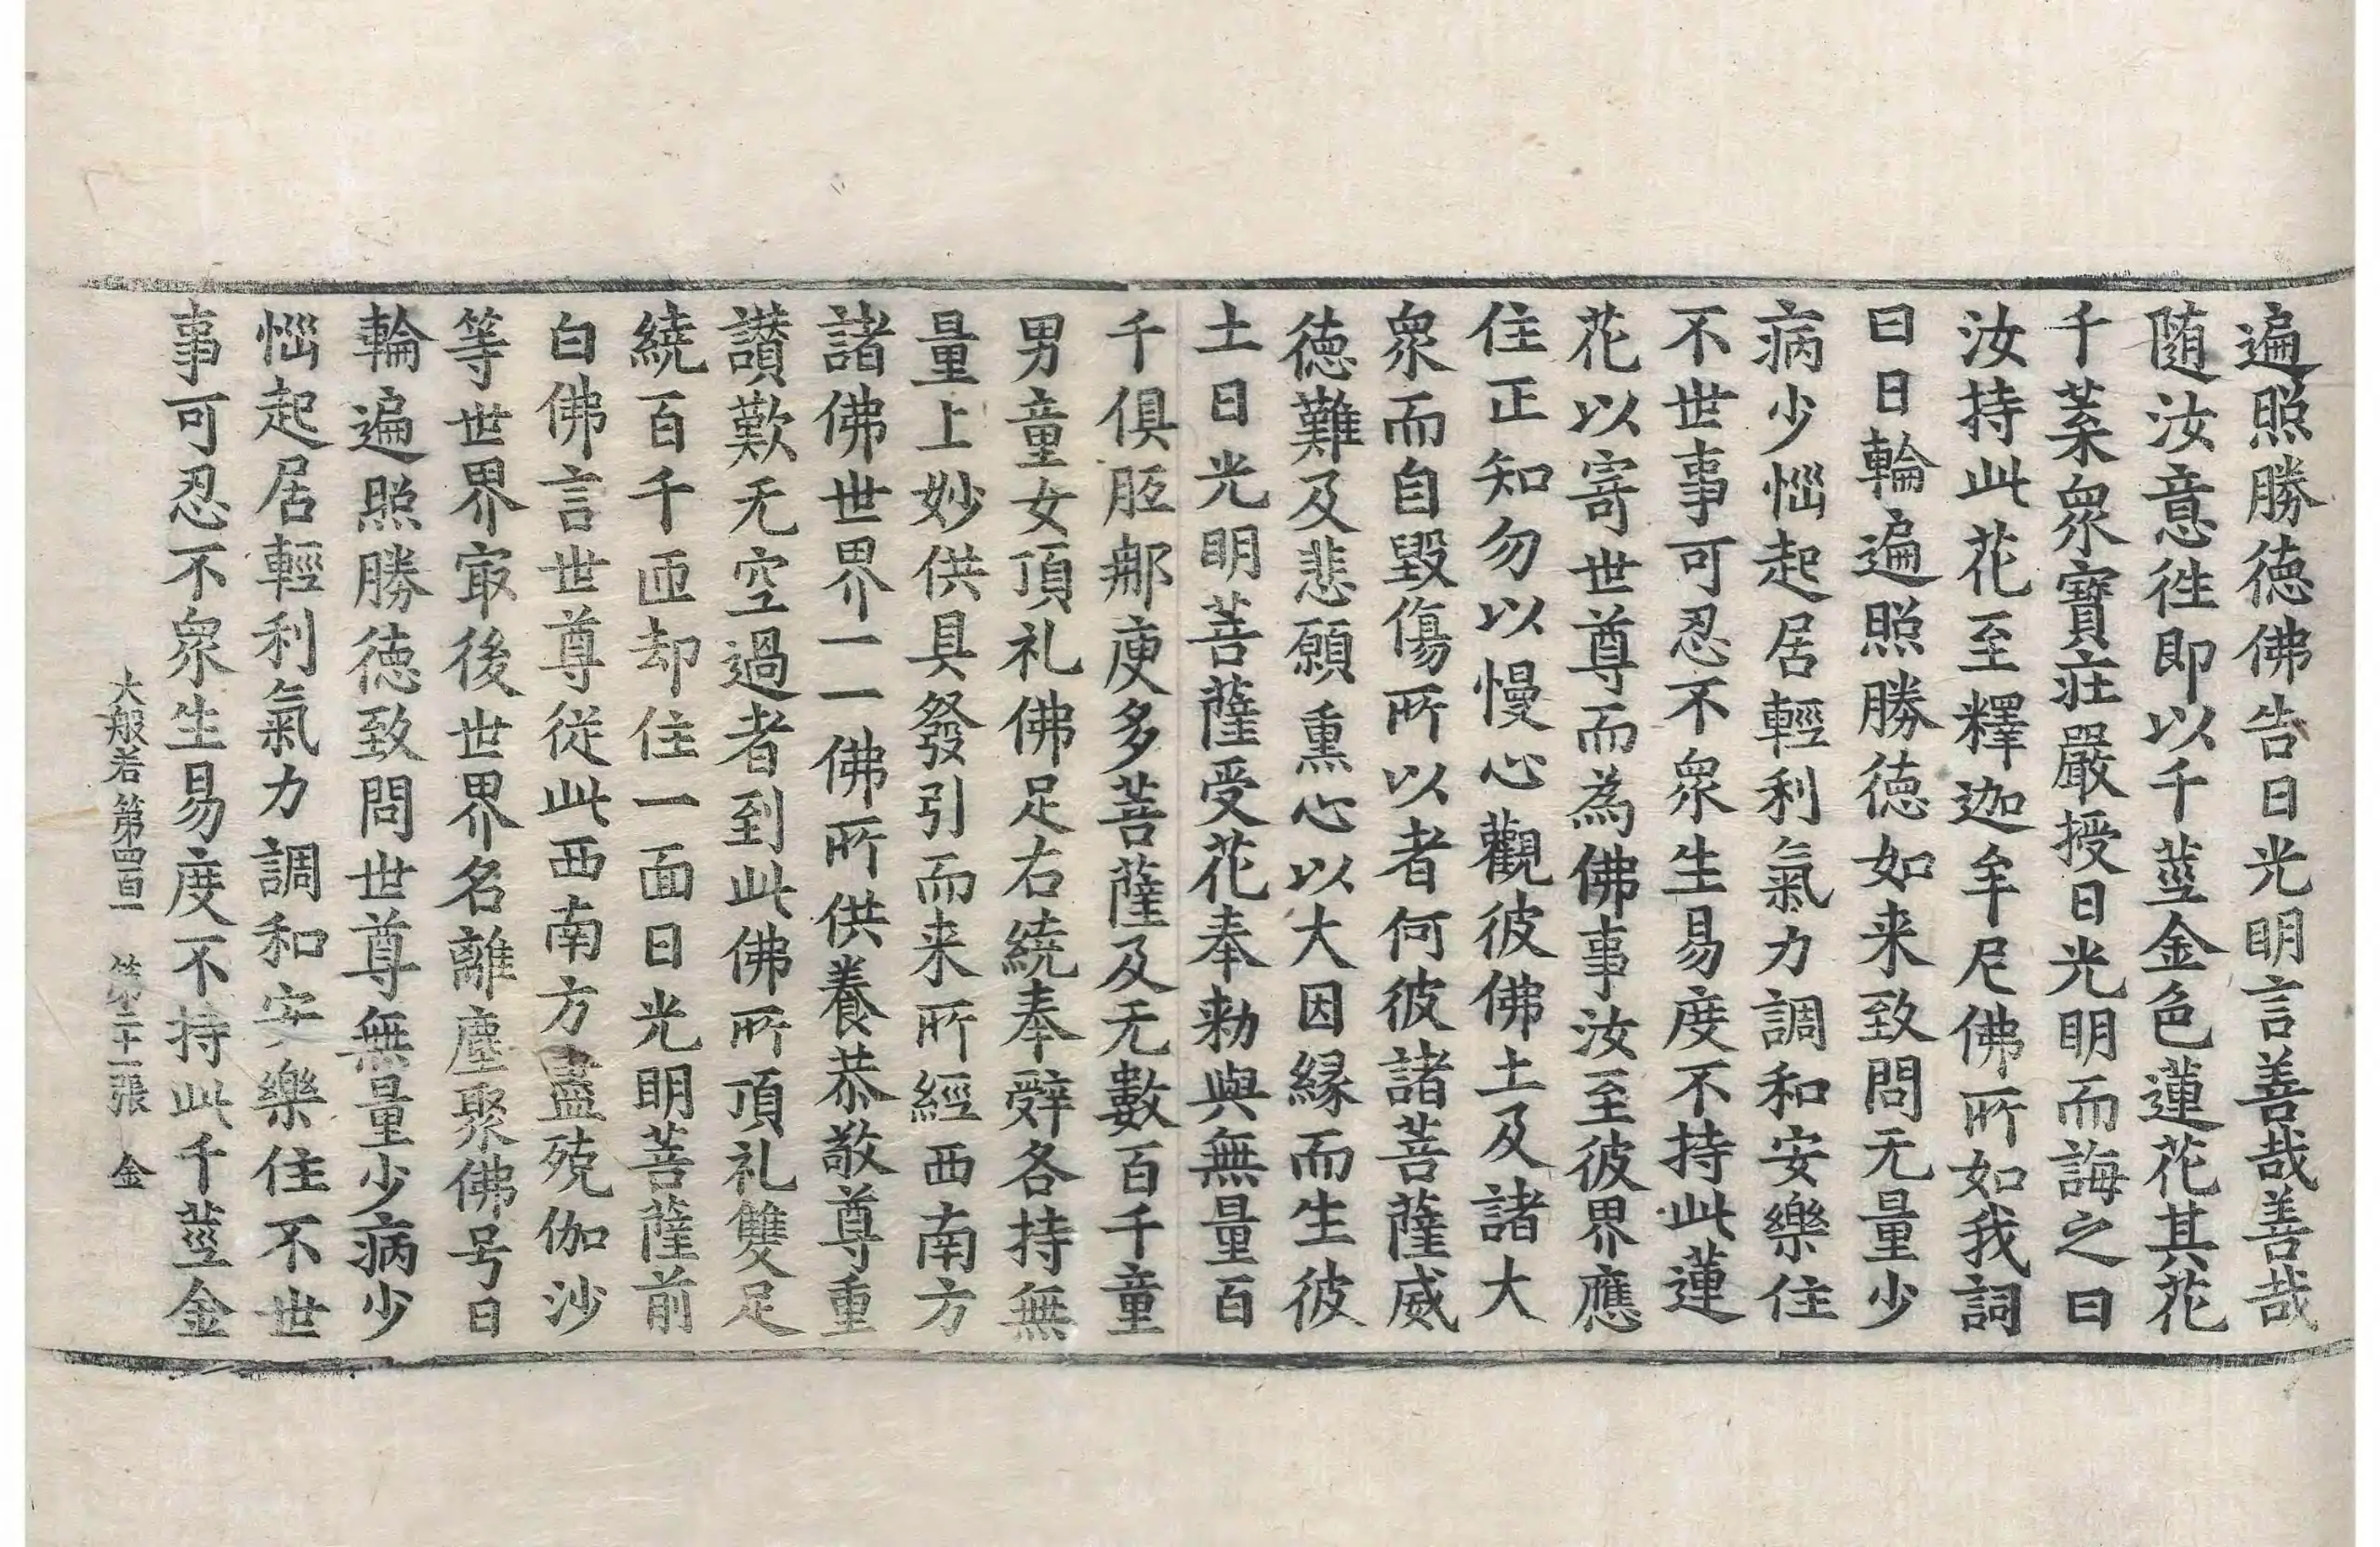 遍照勝德佛告日光明言善哉善哉
随汝意徃即以千莖金色蓮花其花
千葉衆寶莊嚴授日光明而誨之曰
汝持此花至釋迦牟尼佛所如我詞
曰日輪遍照勝德如来致問无量少
病少惱起居輕利氣力調和安樂住
不世事可忍不衆生易度不持此蓮
花以寄世尊而為佛事汝至彼界應
住正知勿以慢心觀彼佛土及諸大
衆而自毀傷所以者何彼諸菩薩威
德難及悲願熏心以大因緣而生彼
土日光明菩薩受花奉勑與無量百
千俱胝那庾多菩薩及无數百千童
男童女頂礼佛足右繞奉辤各持無
量上妙供具發引而来所經西南方
諸佛世界一一佛所供養恭敬尊重
讃歎无空過者到此佛所頂礼雙足
繞百千匝却住一面日光明菩薩前
白佛言世尊從此西南方盡殑伽沙
等世界㝡後世界名離塵聚佛号日
輪遍照勝德致問世尊無量少病少
惱起居輕利氣力調和安樂住不世
事可忍不衆生易度不持此千莖金
大般若第四百一 第二十一張 金